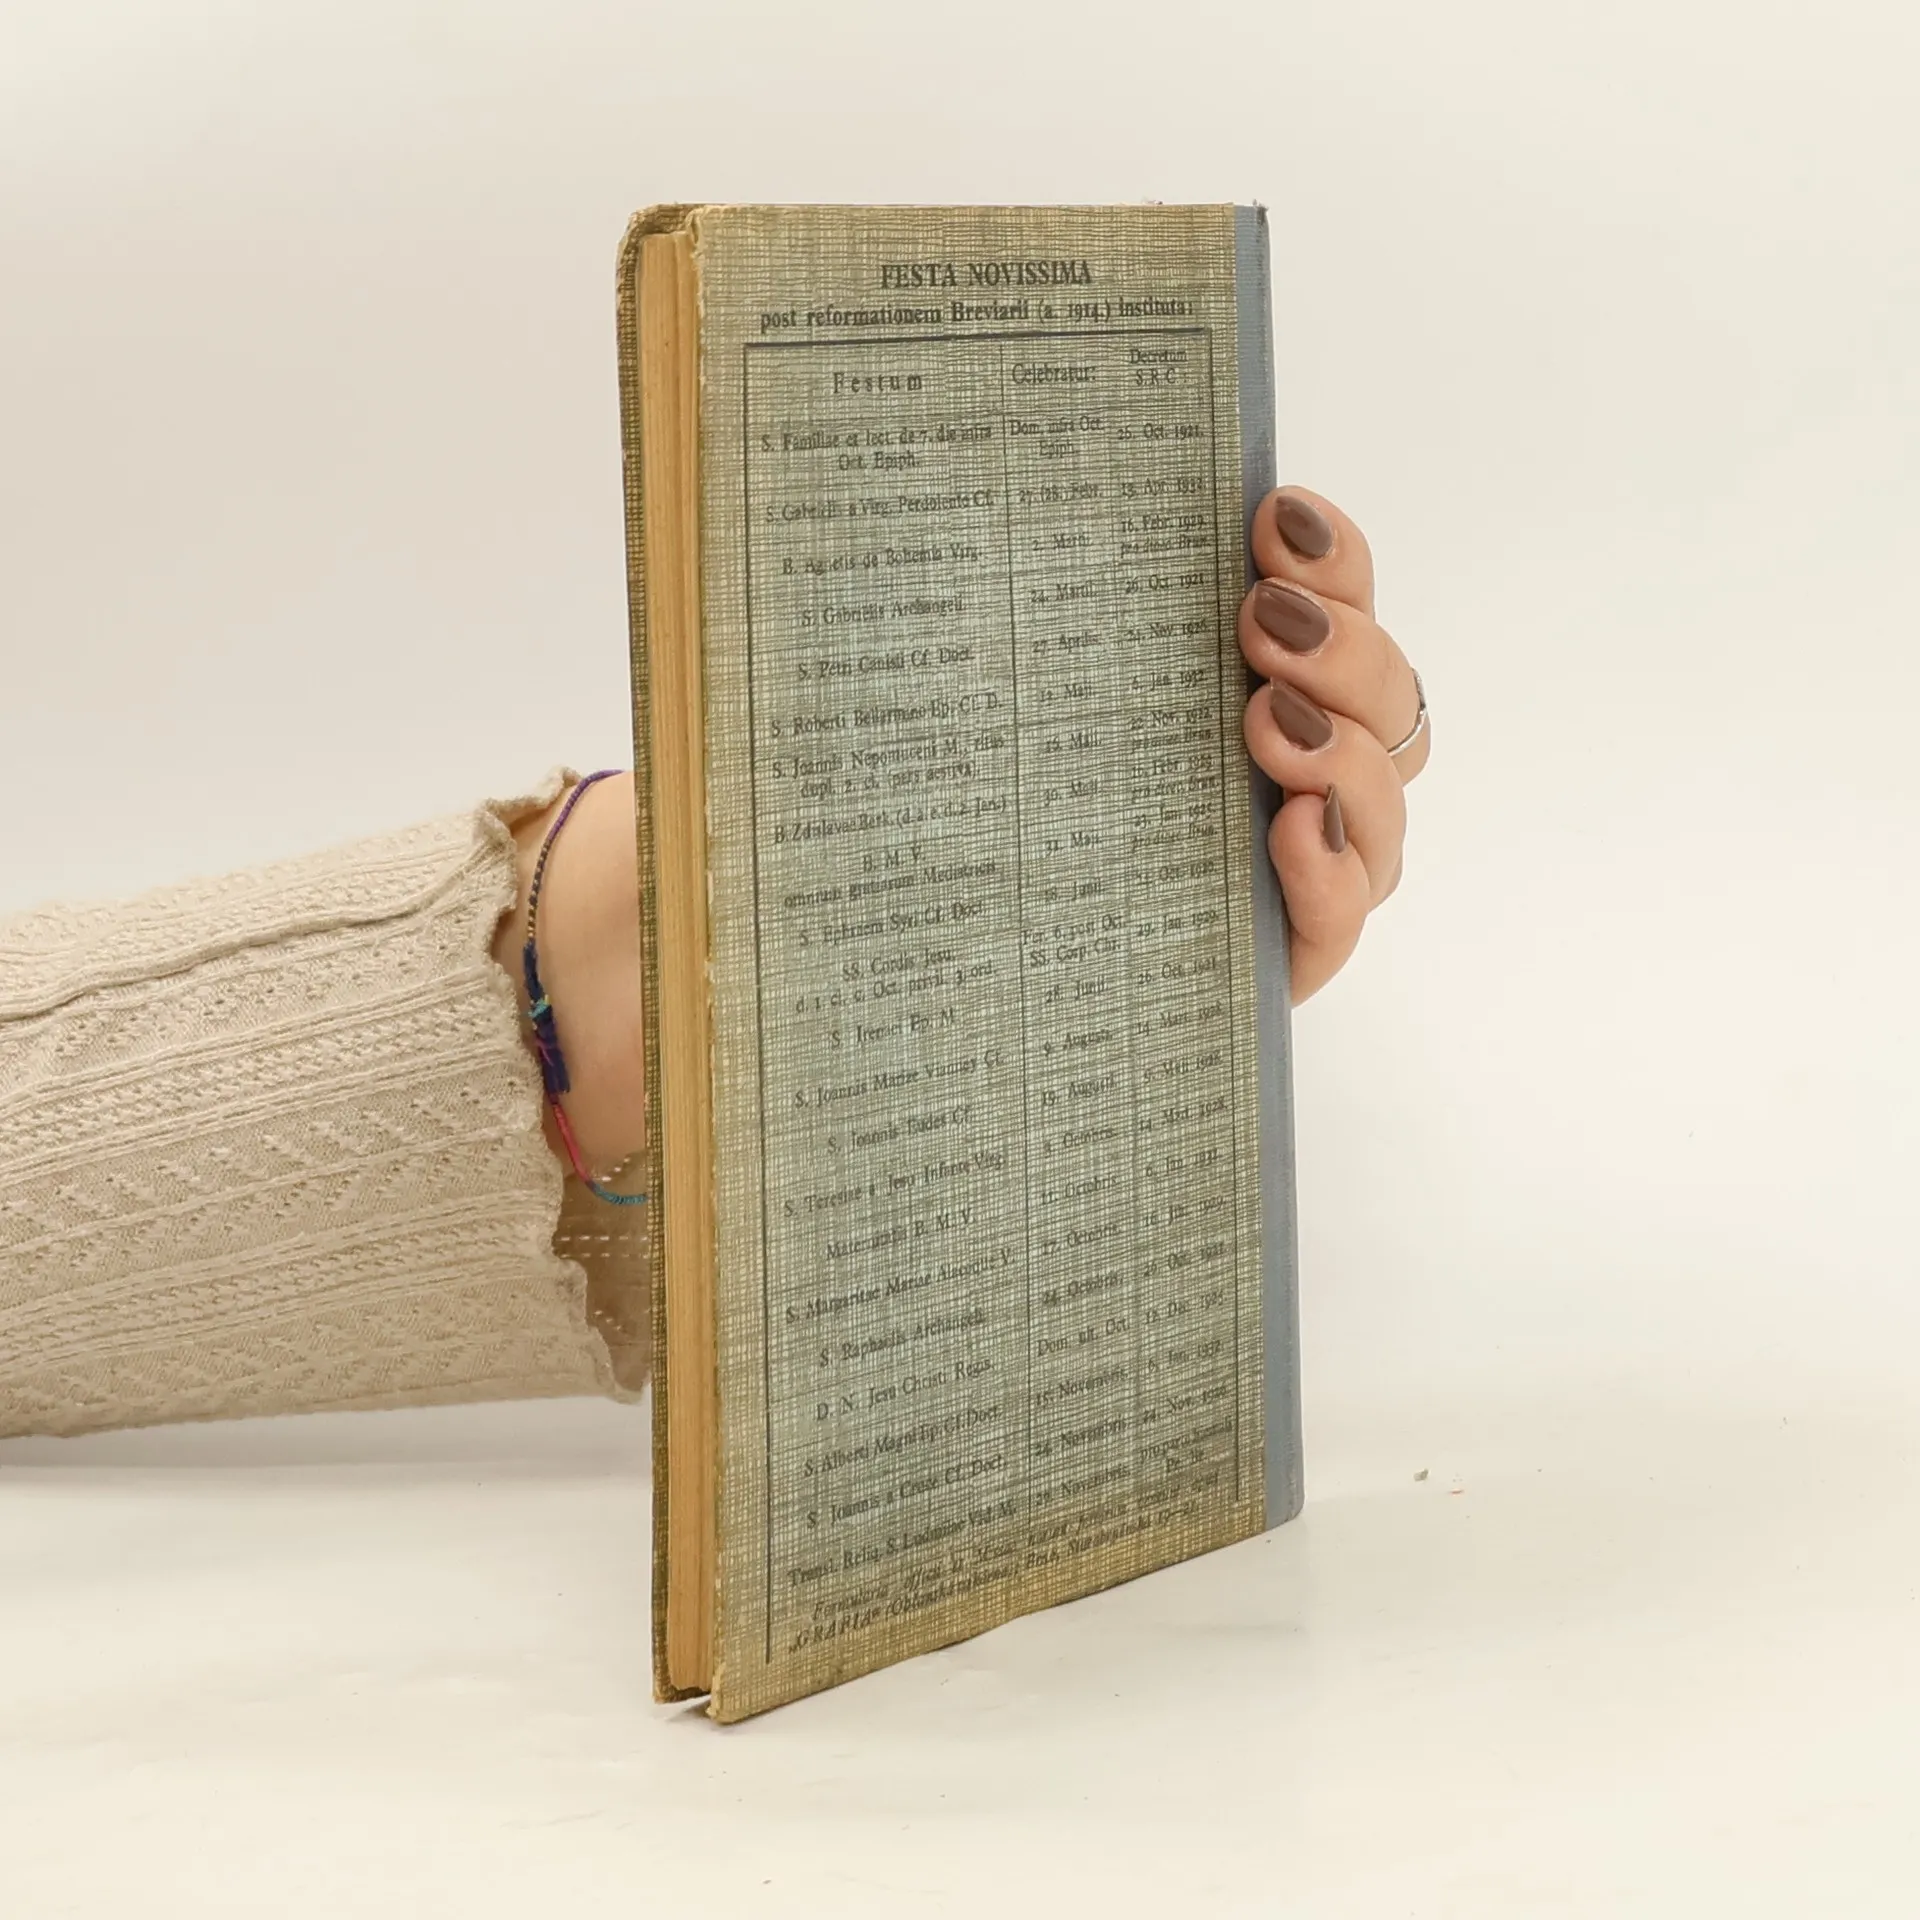 FESTA NOVISSIMA
post reformationem Breviarii (a. 1914.) instituta:
Festum Celebratur: Decretum S. R. C.:
S. Familiae et lect. de 7. die infra Dom. infra Oct. 26. Oct. 1921.
Oct. Epiph. Epiph.
S. Gabrielis a Virg. Perdolente Cf. 27. (28.) Febr. 13. Apr. 1932
B. Agnetis de Bohemia Virg. 2. Martii 16. Febr. 1929. pro dioec. Brun.
S. Gabrielis Archangeli. 24. Martii. 26. Oct. 1921
S. Petri Canisii Cf. Doct. 27. Aprilis. 24. Nov. 1926.
S. Roberti Bellarmino Ep. Cf. D. 13. Maji. 6. Jan. 1932.
S. Joannis Nepomuceni M., ritus 16. Maji. 22. Nov. 1922.
dupl. 2. cl. (pars aestiva). pro dioec. Brun.
B. Zdislavae Berk. (d. a. e. d. 2. Jan.) 30. Maji. 16. Febr. pro dioec. Brun.
B. M. V. 31. Maji. 23. Jan. 1925.
omnium gratiarum Mediatricis pro dioec. Brun.
S. Ephraem Syri Cf. Doct. 18. Junii. Oct. 1920.
SS. Cordis Jesu. Fer. 6. post Oct. 29. Jan. 1929.
d. 1. cl. c. Oct. privil. 3. ord. SS. Corp. Chr.
S. Irenaei Ep. M. 28. Junii. 26. Oct. 1921.
S. Joannis Mariae Vianney Cf. 9. Augusti. 14. Mart. 1928.
S. Joannis Eudes Cf. 19. Augusti. 9. Maii 1928.
S. Teresiae a Jesu Infante Virg. 3. Octobris. 14. Mart. 1928.
Maternitatis B. M. V. Octobris. 6. Jan. 1932.
S. Margaritae Mariae Alacoque V. 17. Octobris. Jan.
S. Raphaelis Archangeli. 24. Octobris. 26. Oct. 1921.
D. N. Jesu Christi Regis. Dom. ult. Oct. 12. Dec. 1925
S. Alberti Magni Ep. Cf. Doct. 15. Novembris. 6. Jan. 1932.
S. Joannis a Cruce Cf. Doct. 24. Novembris. 24. Nov. 1926
Transl. Reliq. S. Ludmilae Vid. M. Novembris. pro
Formularia officii et Missae horum vendit
„GRAFIA" (Oblátková továrna),